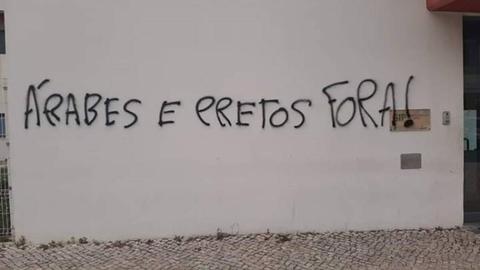 ÁRABES E PRETOS FORA!